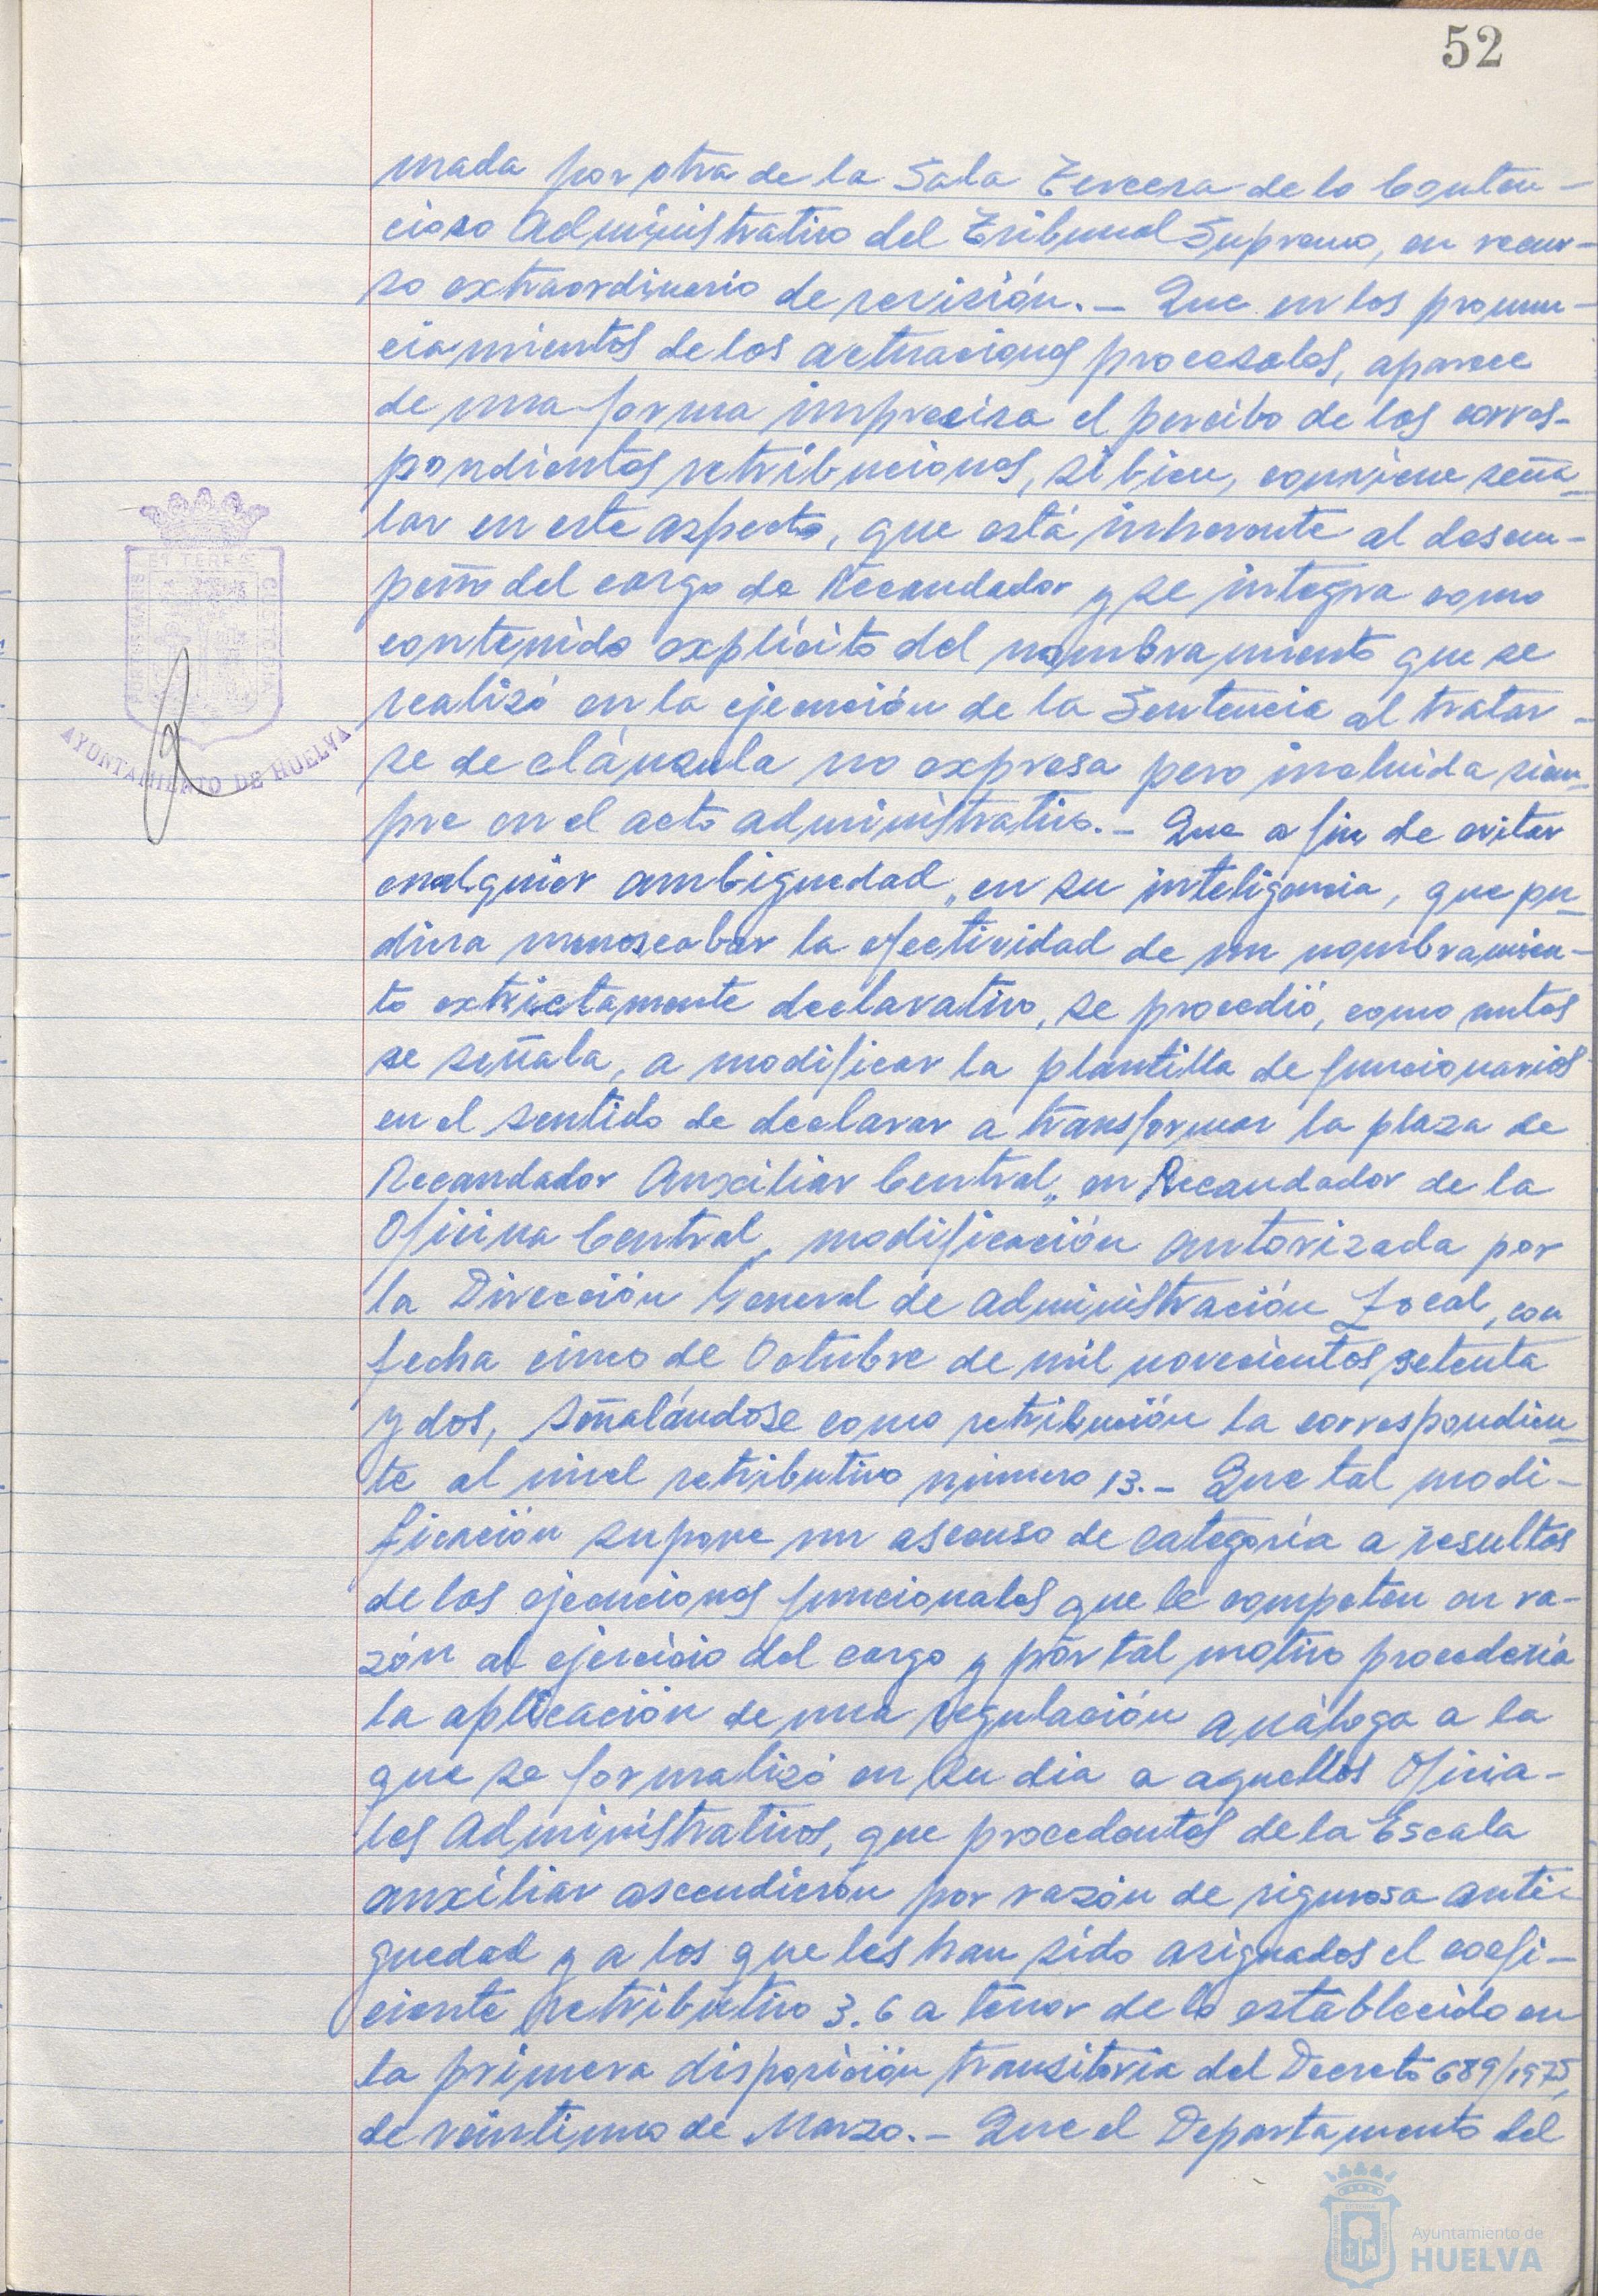 52
mada por otra de la Sala Tercera de lo Conten-
cioso Administrativo del Tribunal Supremo, en recur-
so extraordinario de revisión.- Que en los pronun-
ciamientos de las actuaciones procesales, aparece
de una forma imprecisa el percibo de las corres-
pondientes retribuciones, si bien, conviene seña-
lar en este aspecto, que está inherente al desem-
peño del cargo de Recaudador y se integra como
contenido explícito del nombramiento que se
realizó en la ejecución de la Sentencia al tratar-
se de cláusula no expresa pero incluida siem-
pre en el acto administrativo.- Que a fin de evitar
cualquier ambiguedad, en su inteligencia, que pu-
diera menoscabar la efectividad de un nombramien-
to extrictamente declarativo, se procedió, como antes
se señala, a modificar la plantilla de funcionarios
en el sentido de declarar a transformar la plaza de
Recaudador Auxiliar Central, en Recaudador de la
Oficina Central, modificación autorizada por
la Dirección General de Administración Local, con
fecha cinco de Octubre de mil novecientos setenta
y dos, señalándose como retribución la correspondien-
te al nivel retributivo número 13.- Que tal modi-
ficación supone un ascenso de categoría a resultas
de las ejecuciones funcionales que le competen en ra-
zón al ejercicio del cargo y por tal motivo procedería
la aplicación de una regulación análoga a la
que se formalizó en su dia a aquellos Oficia-
les Administrativos, que procedentes de la Escala
auxiliar ascendieron por razón de rigurosa anti-
guedad y a los que les han sido asignados el coefi-
ciente retributivo 3.6 a tenor de lo establecido en
la primera disposición transitoria del Decreto 689/1975,
de veintiuno de Marzo.- Que el Departamento del
AYUNTAMIENTO DE HUELVA
Ayuntamiento de
HUELVA